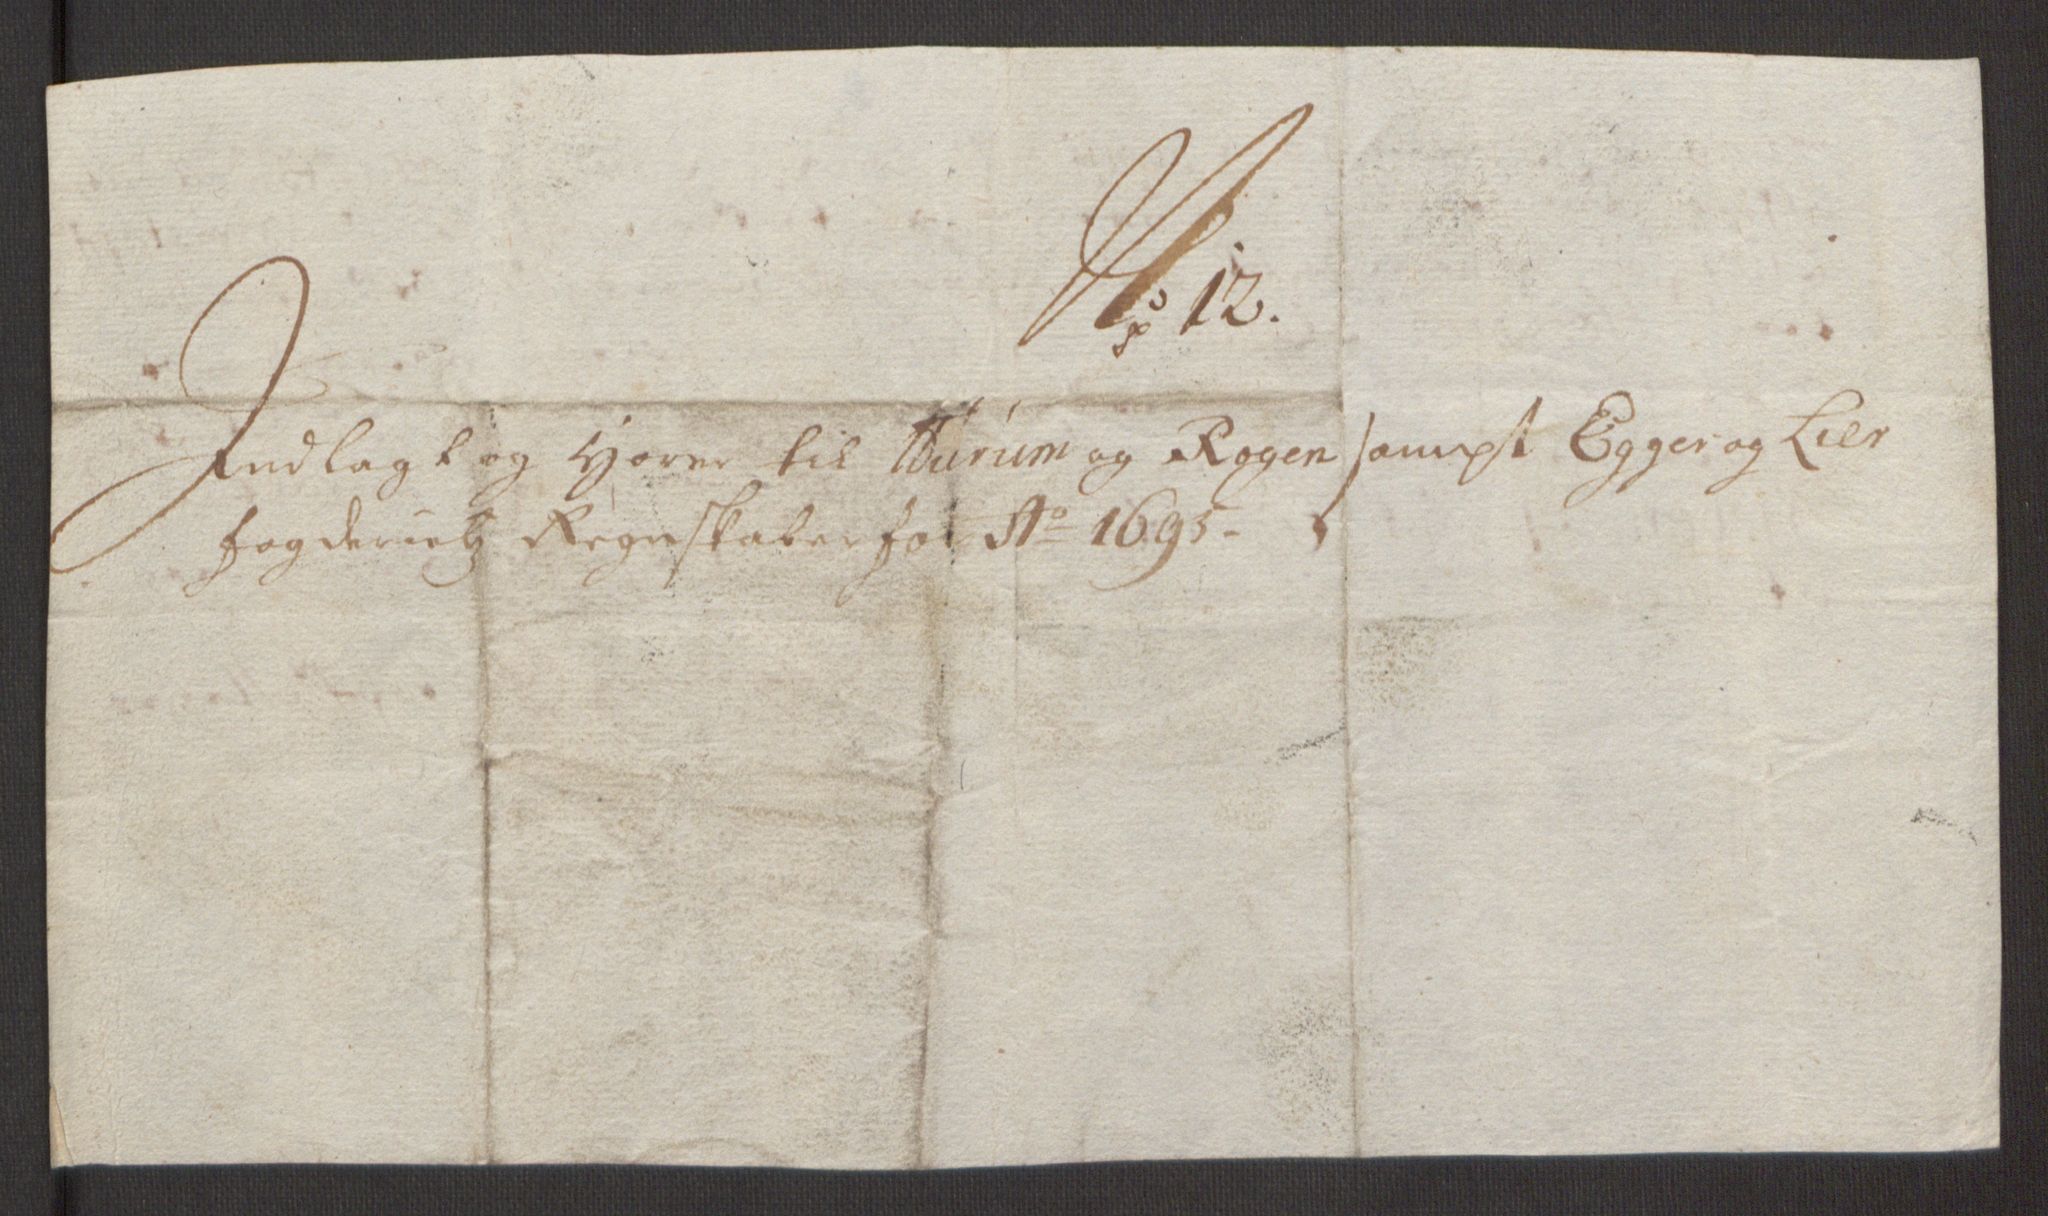 No 12.
Indlagt og Hører til Burum og Røgen sampt Egger og Lier
fogderietz Regnskaber for Ao 1695.